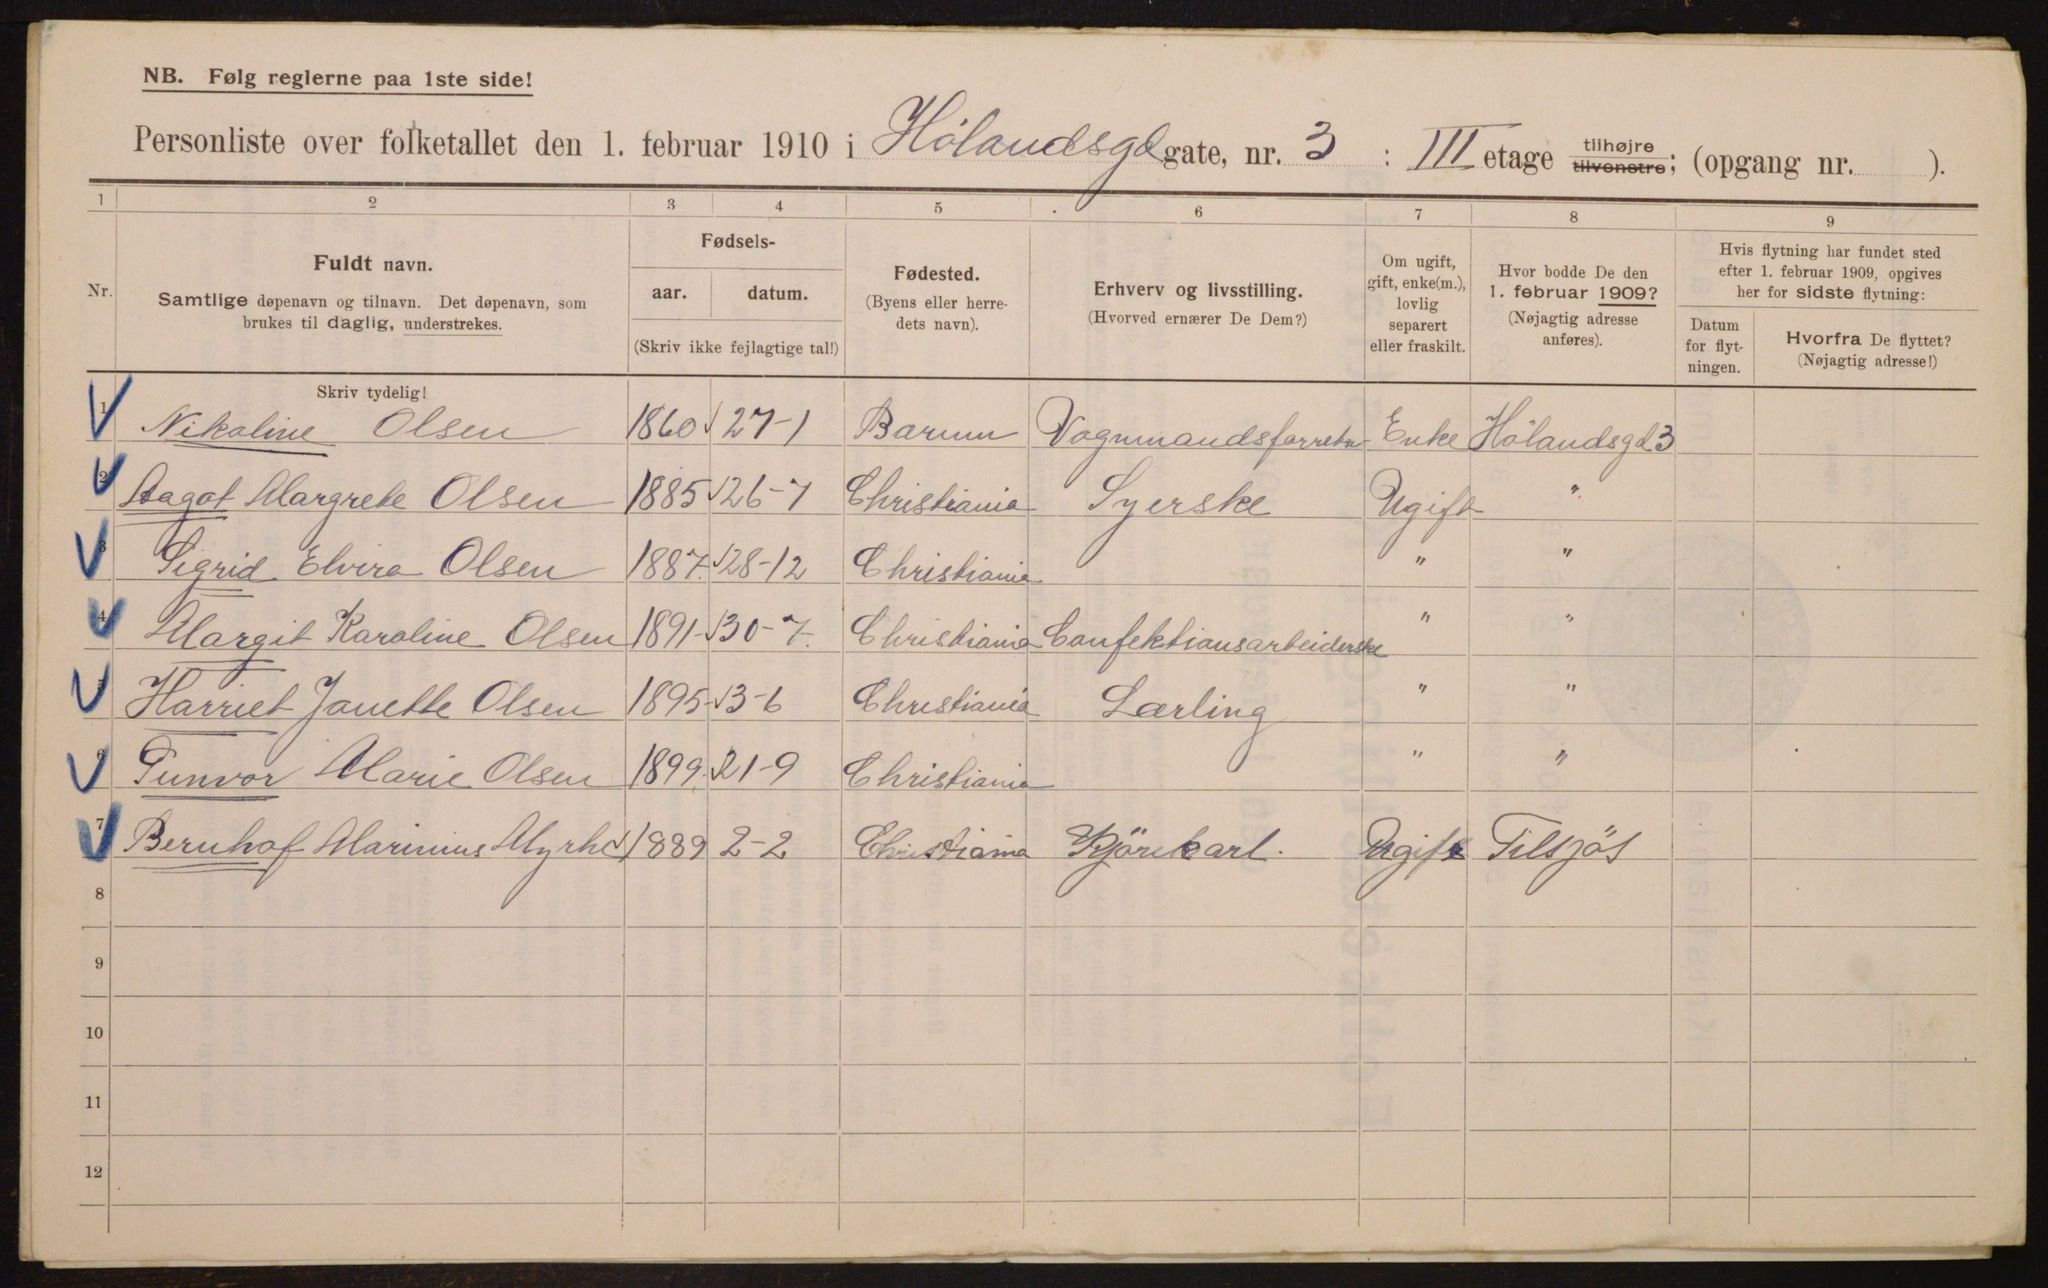 NB. Følg reglerne paa 1ste side!
Personliste over folketallet den 1. februar 1910 i Hølandsgd gate, nr. 3 : III etage tilhøjre tilvenstre; (opgang nr. ).
1 2 3 4 5 6 7 8 9
Nr.
Fuldt navn.
Samtlige døpenavn og tilnavn. Det døpenavn, som
brukes til daglig, understrekes.
Skriv tydelig!
Fødsels-
aar. datum.
(Skriv ikke fejlagtige tal!)
Fødested.
(Byens eller herre-
dets navn).
Erhverv og livsstilling.
(Hvorved ernærer De Dem?)
Om ugift,
gift, enke(m.),
lovlig
separert
eller fraskilt.
Hvor bodde De den
1. februar 1909?
(Nøjagtig adresse
anføres).
Hvis flytning har fundet sted
efter 1. februar 1909, opgives
her for sidste flytning:
Datum
for flyt-
ningen.
Hvorfra De flyttet?
(Nøjagtig adresse!)
1 Nikoline Olsen 1860 27-1 Barum Vognmandsforretn Enke Hølandsgd 3
2 Aagot Margrete Olsen 1885 26-7 Christiania Syerske Ugift "
3 Sigrid Elvira Olsen 1887. 28-12 Christiania " "
4 Margit Karoline Olsen 1891- 30-7. Christiania Confektionsarbeiderske " "
5 Harriet Janette Olsen 1895- 3-6 Christiania Lærling " "
6 Gunvor Marie Olsen 1899. 21-9 Christiania " "
7 Bernhof Marinius Myrhe 1889 2-2 Christiania Kjörekarl. Ugift Tilsjös
8
9
10
11
12